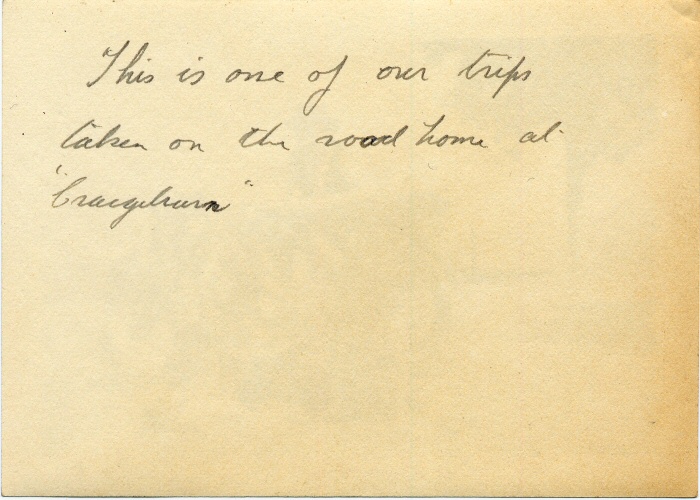 This is one of our trips
taken on the road home at
"Craigeburn"